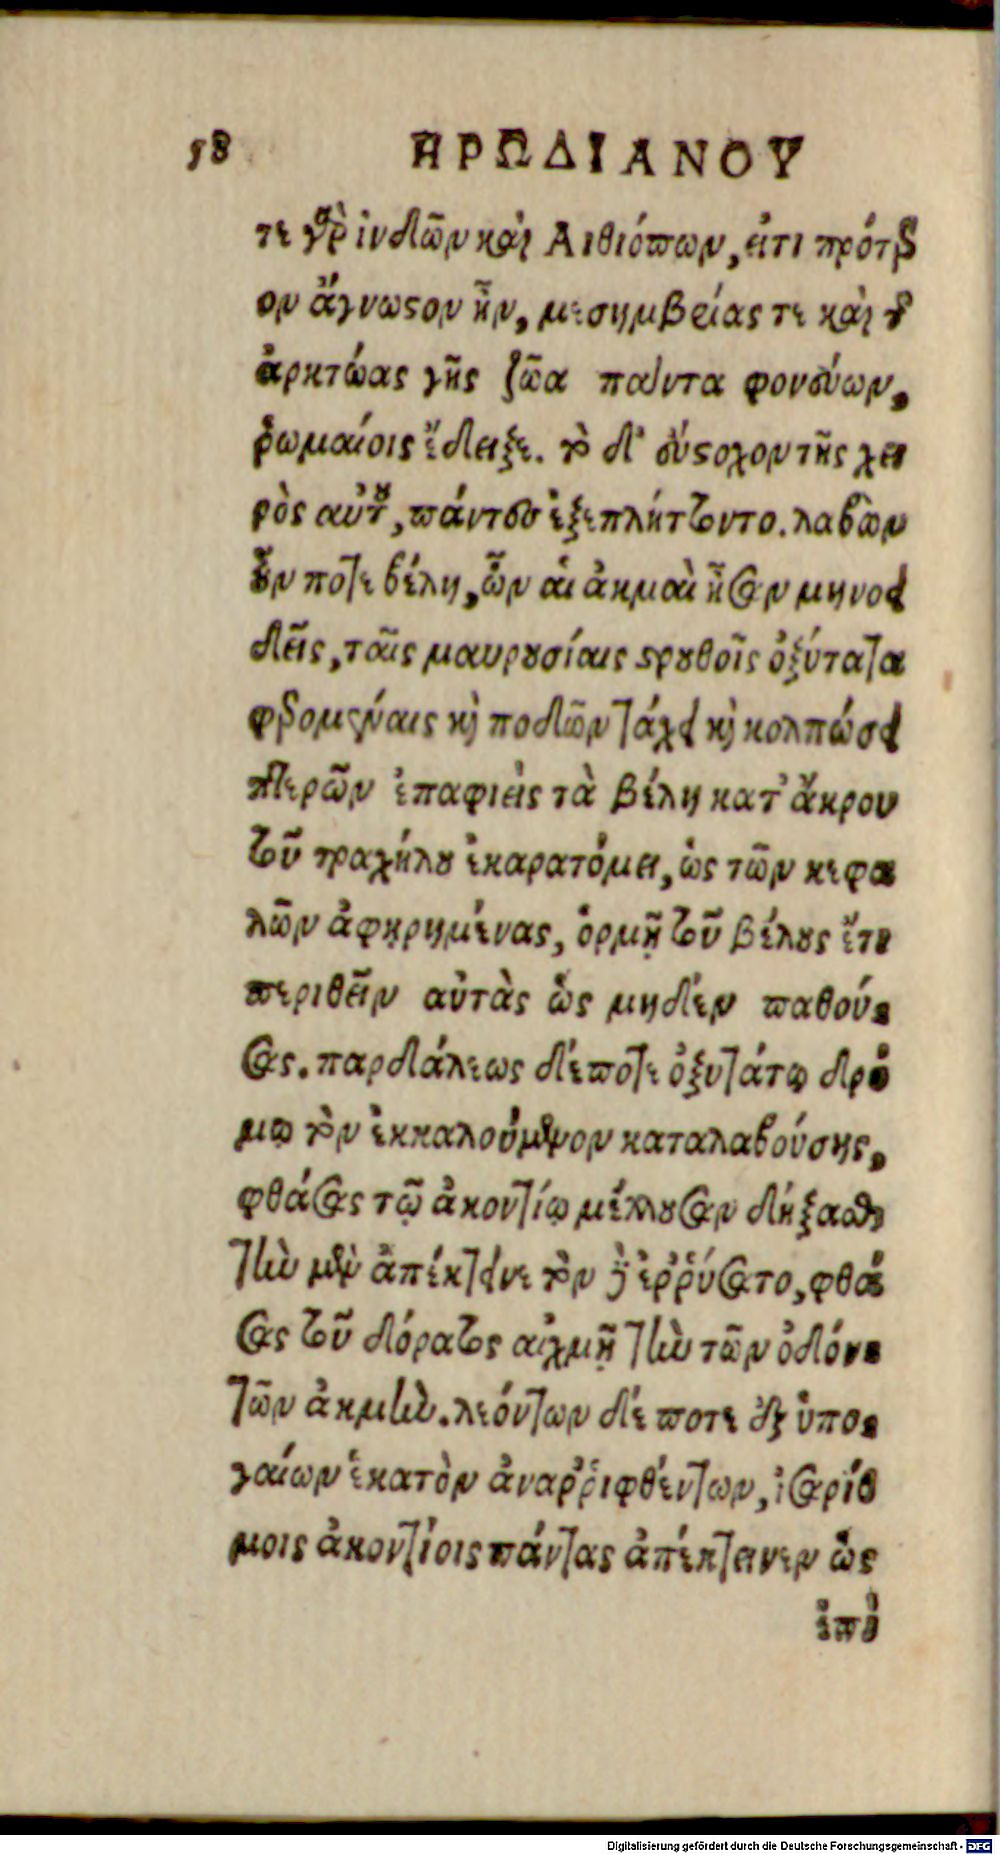 58 ΗΡΩΔΙΑΝΟΥ
τε γὰρ ἰνδῶν καὶ Αἰθιόπων, εἴτι πρότερ
ον ἄγνωστον ἦν, μεσημβρίας τε καὶ τ
ἀρκτώας γῆς ζῶα πάντα φονεύων,
ῥωμαίοις ἔδειξε. τὸ δ' εὔστοχον τῆς χει
ρὸς αὐτοῦ, πάντες ἐξεπλήττοντο. λαβὼν
οὖν ποτε βέλη, ὧν αἱ ἀκμαὶ ἦσαν μηνοει
δεῖς, ταῖς μαυρουσίαις στρουθοῖς ὀξύτατα
φερομέναις καὶ ποδῶν τάχει καὶ κολπώσει
πτερῶν ἐπαφιεὶς τὰ βέλη κατ' ἄκρου
τοῦ τραχήλου ἐκαρατόμει, ὡς τῶν κεφα
λῶν ἀφῃρημένας, ὁρμῇ τοῦ βέλους ἔτι
περιθεῖν αὐτὰς ὡς μηδὲν παθού
σας. παρδάλεως δέ ποτε ὀξυτάτῳ δρό
μῳ τὸν ἐκκαλούμενον καταλαβούσης,
φθάσας τῷ ἀκοντίῳ μέλλουσαν δήξασθαι
τὴν μὲν ἀπέκτεινε τὸν δὲ ἐρρύσατο, φθά
σας τοῦ δόρατος αἰχμῇ τὴν τῶν ὀδόν
των ἀκμὴν. λεόντων δέ ποτε ἐξ ὑπο
γαίων ἑκατὸν ἀναρριφθέντων, ἰσαρίθ
μοις ἀκοντίοις πάντας ἀπέκτεινεν ὡς
ἐπὶ
Digitalisierung gefördert durch die Deutsche Forschungsgemeinschaft - DFG